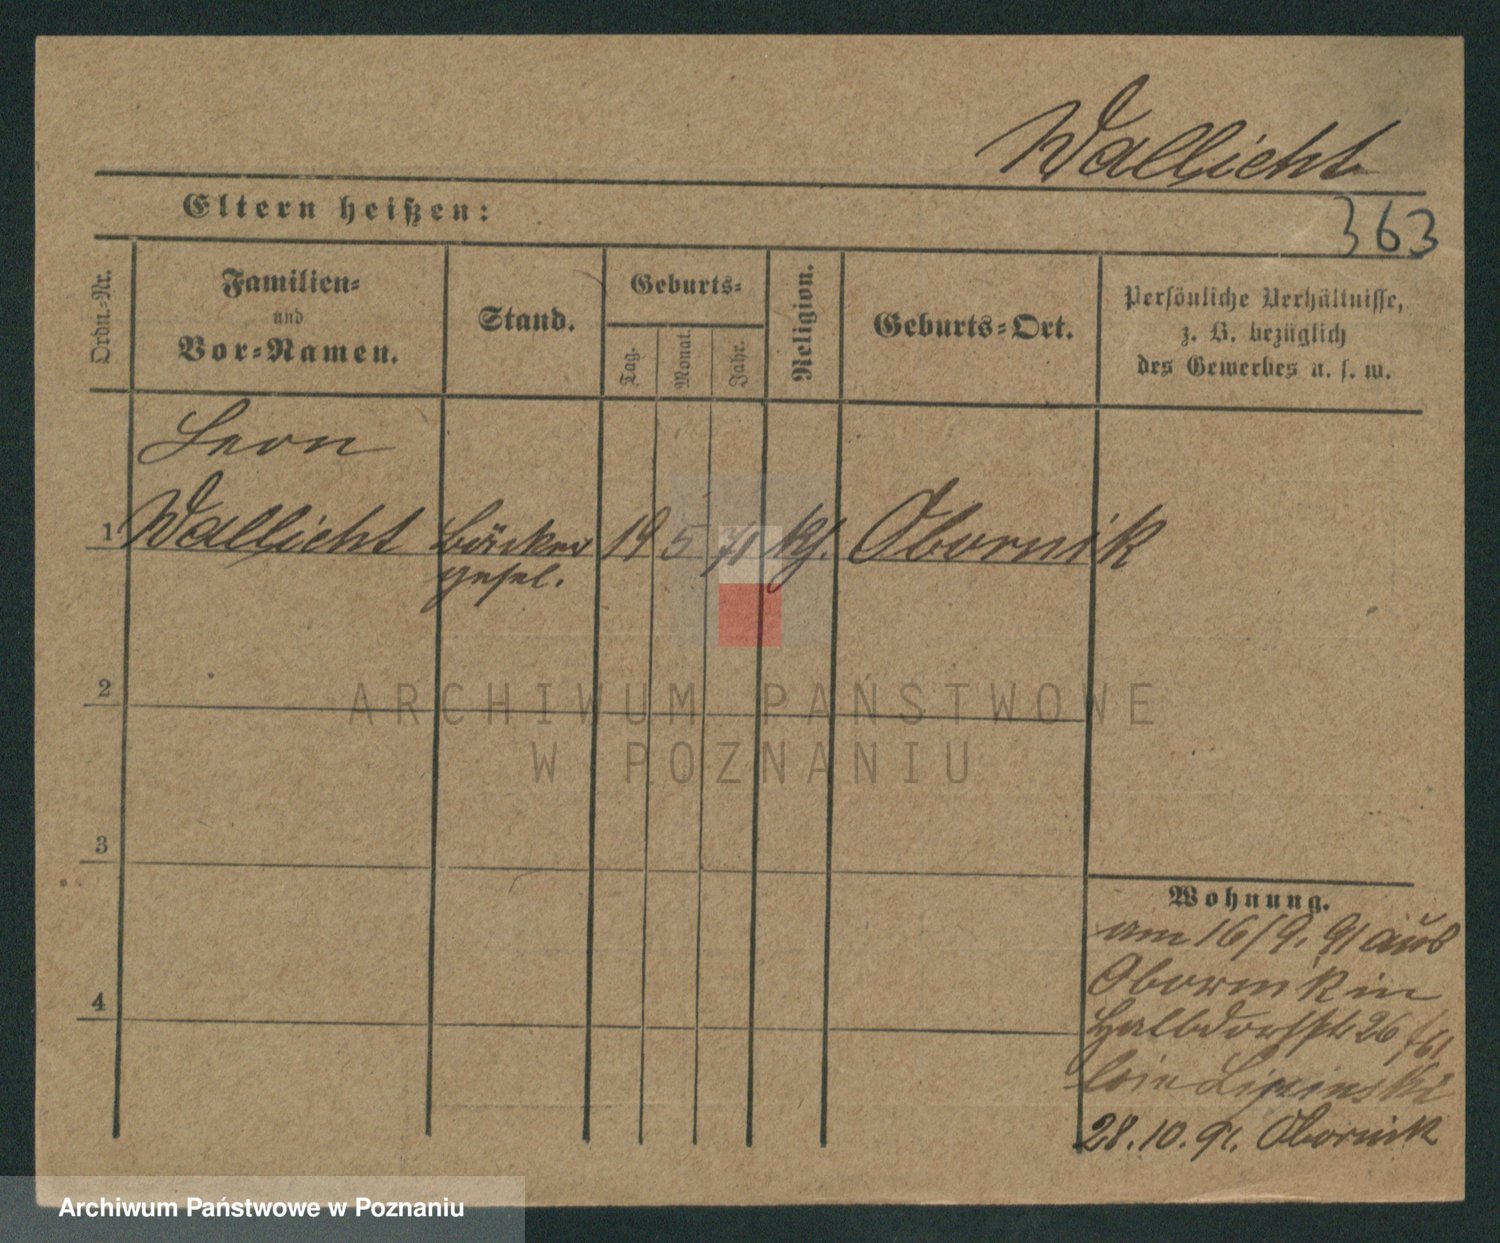 Wallicht
363
Eltern heißen:
Ordn.-Nr.
Familien-
und
Vor-Namen.
Stand.
Geburts-
Tag.
Monat.
Jahr.
Religion.
Geburts-Ort.
Persönliche Verhältnisse,
z. B. bezüglich
des Gewerbes u. s. w.
Leon
1 Wallicht Bäcker 19 5 71 kt. Obornik
gesel.
2
3
4
Wohnung.
am 16/9. 91 aus
Obornik in
Halbdorfstr 26
bei Lipinski
28.10.91. Obornik
ARCHIWUM PAŃSTWOWE
W POZNANIU
Archiwum Państwowe w Poznaniu